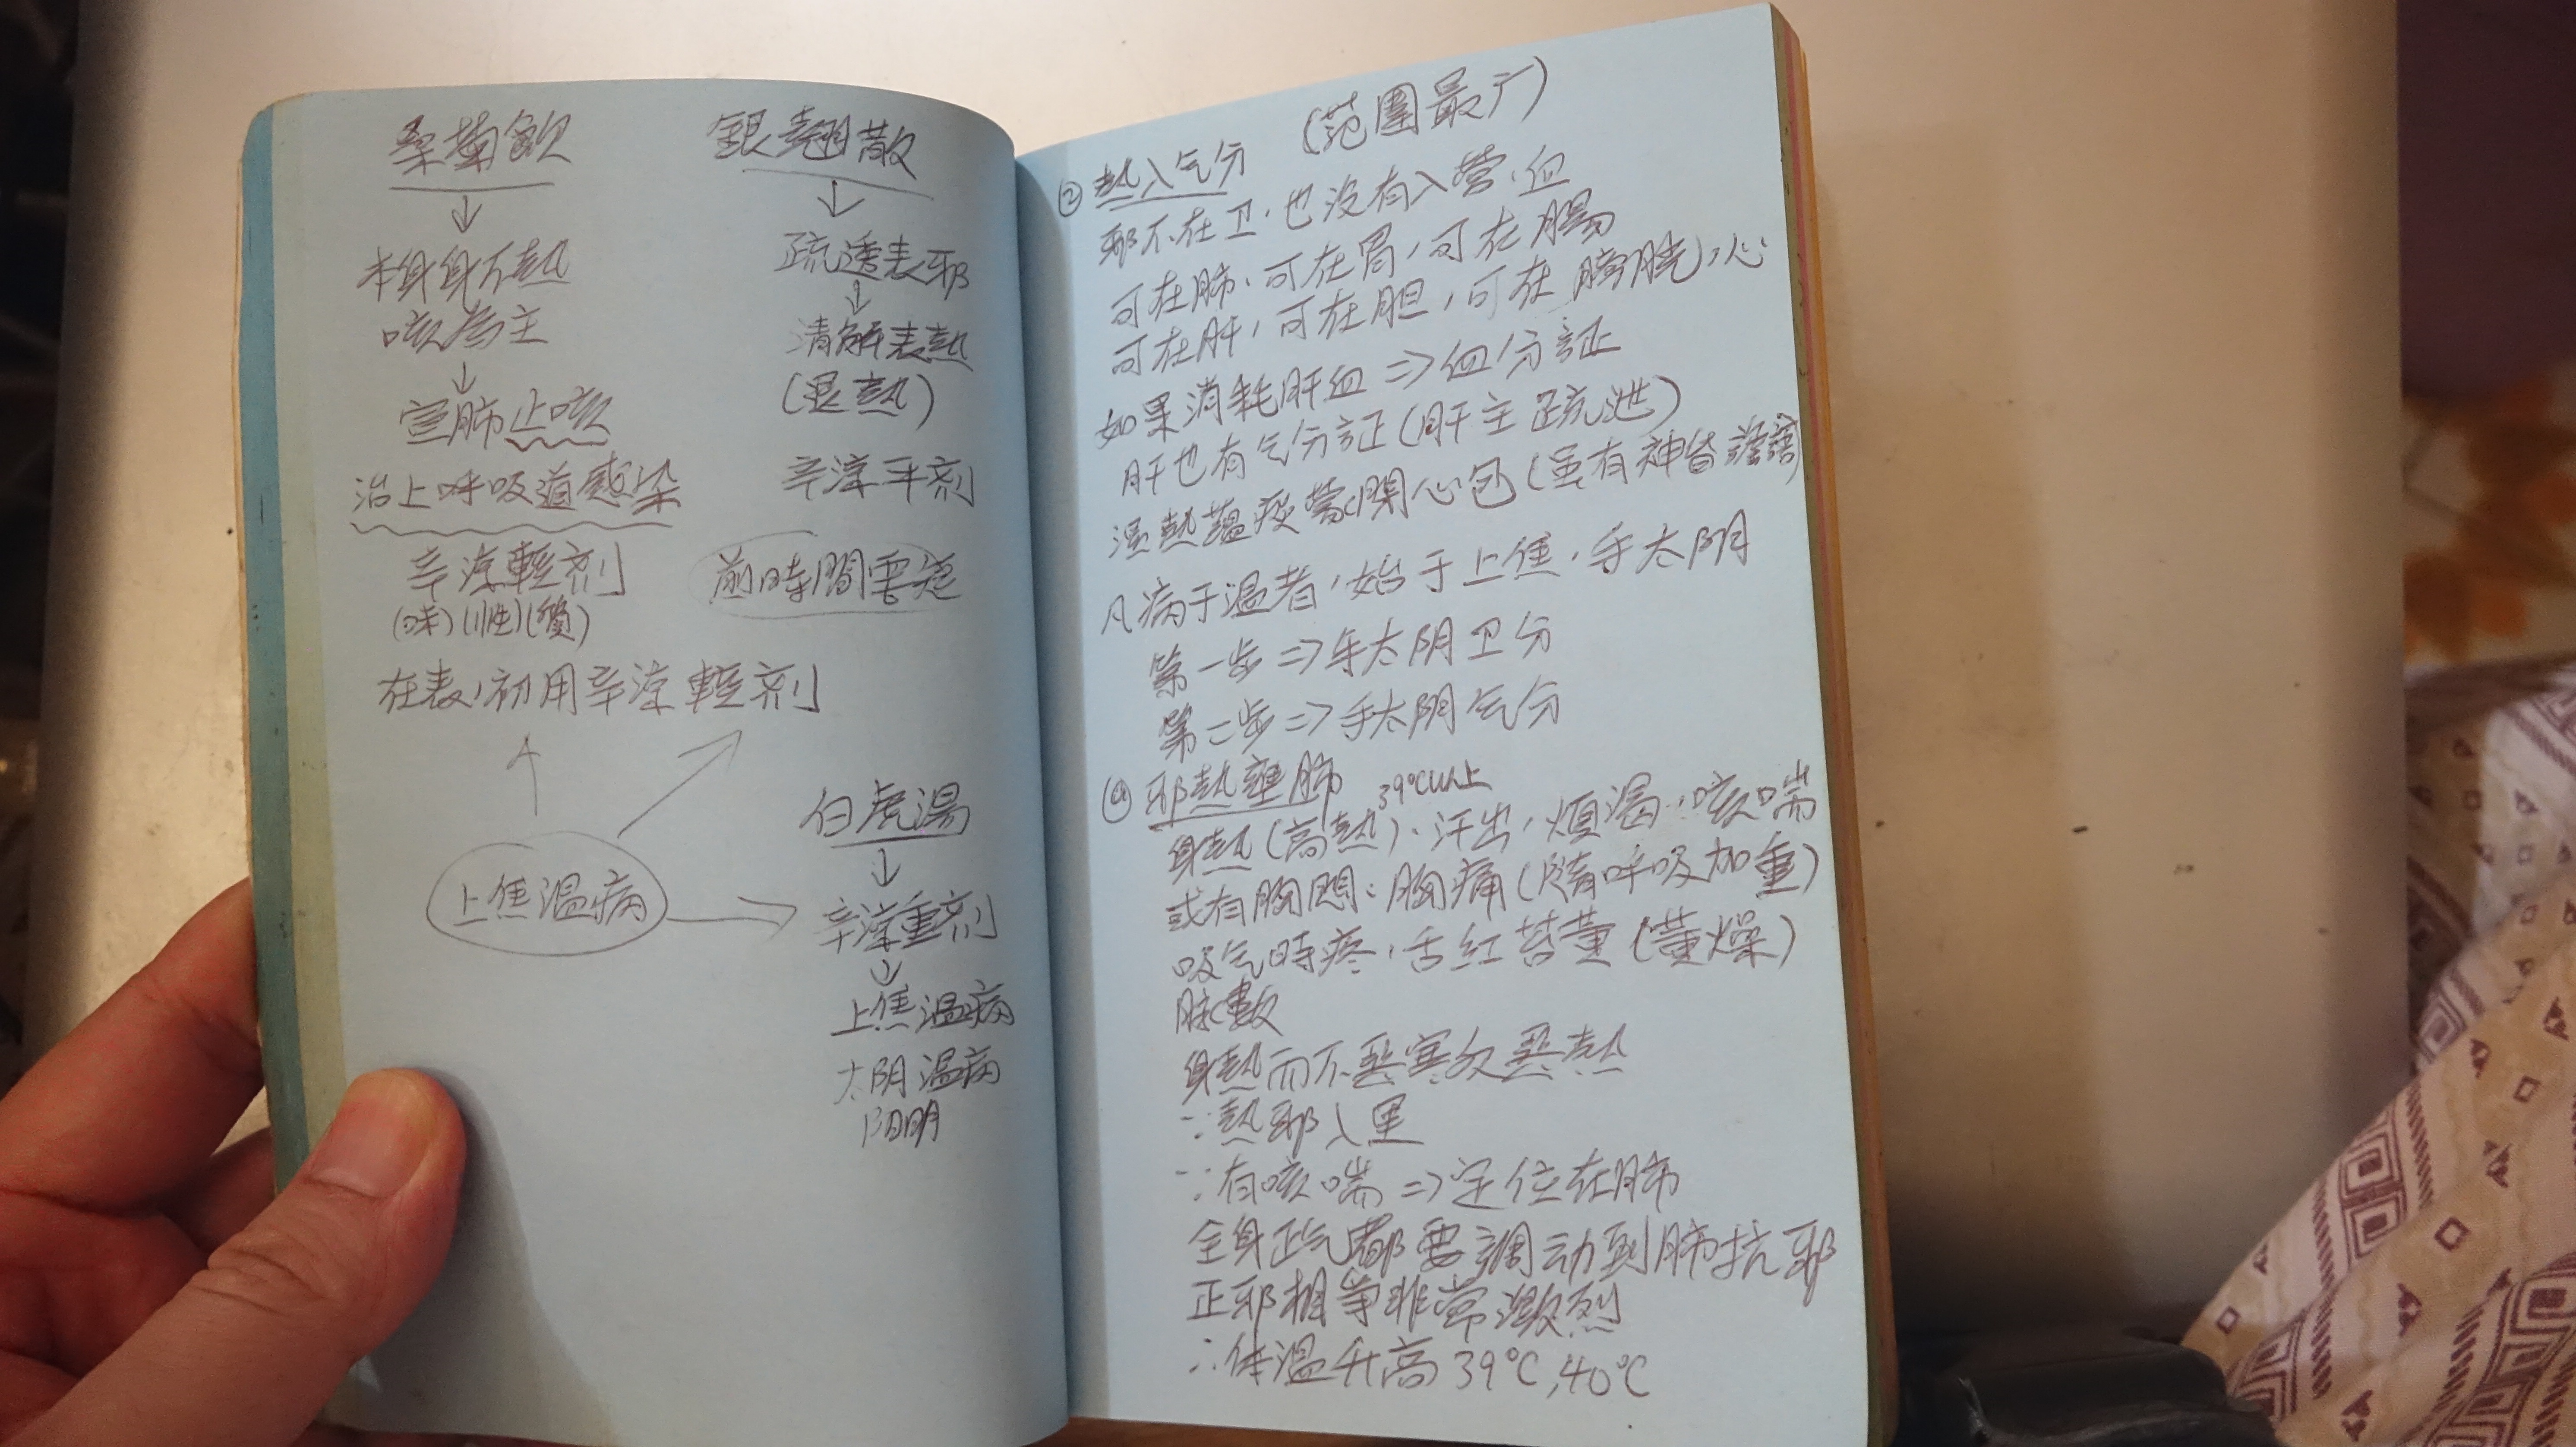 桑菊飲
↓
本身身不熱
咳為主
↓
宣肺止咳
治上呼吸道感染
辛涼輕剂
(味)(性)(質)
銀翹散
↓
疏透表邪
↓
清解表熱
(退熱)
辛涼平剂
煎時間要短
在表,初用辛涼輕剂
上焦温病
白虎湯
↓
辛涼重剂
↓
上焦温病
太阴温病
阳明
② 熱入气分 (范圍最广)
邪不在卫,也没有入营、血
可在肺,可在胃,可在腸
可在肝,可在胆,可在膀胱,心
如果消耗肝血⇒血分証
肝也有气分証(肝主疏泄)
湿熱蕴痰蒙閉心包(虽有神昏譫語)
凡病于温者,始于上焦,手太阴
第一步⇒手太阴卫分
第二步⇒手太阴气分
邪熱壅肺 39℃以上
身熱(高熱)、汗出,煩渴、咳喘
或有胸悶、胸痛(随呼吸加重)
吸气時疼,舌红苔黄(黄燥)
脉数
身熱而不恶寒反恶熱
∵熱邪入里
∵有咳喘⇒定位在肺
全身正气都要調动到肺抗邪
正邪相争非常激烈
∴体温升高39℃,40℃